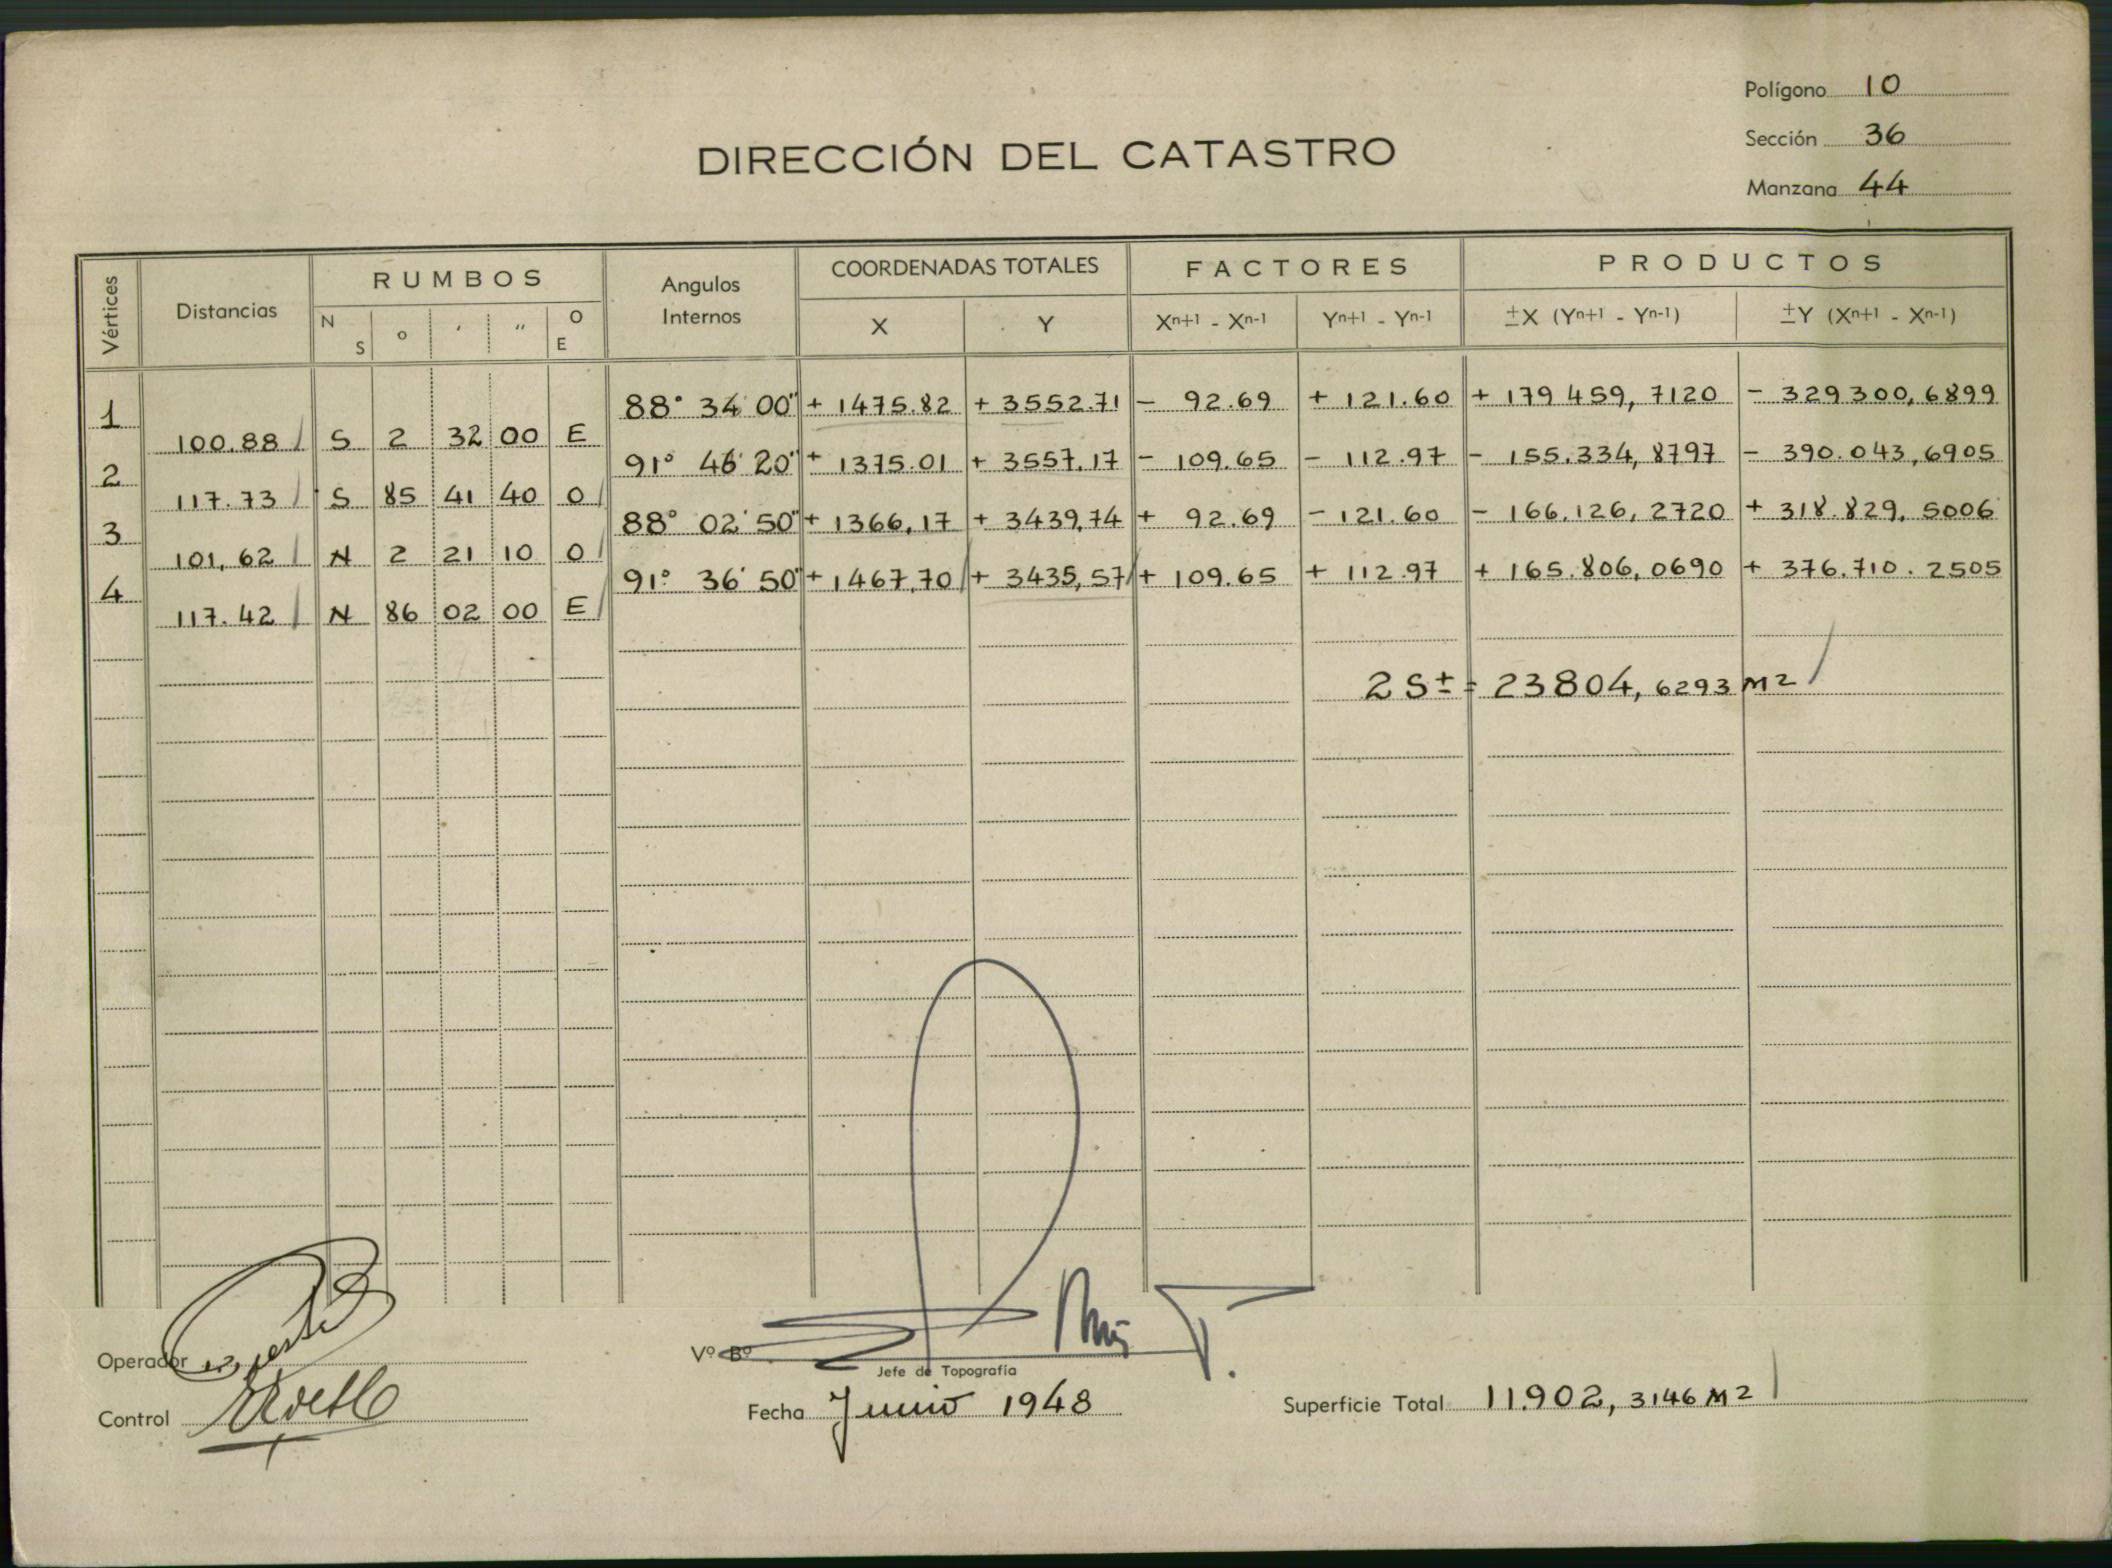 Polígono 10
Sección 36
Manzana 44
DIRECCIÓN DEL CATASTRO
Vértices Distancias RUMBOS N S o ' " O E Angulos Internos COORDENADAS TOTALES X Y FACTORES Xn+1 - Xn-1 Yn+1 - Yn-1 PRODUCTOS ±X (Yn+1 - Yn-1) ±Y (Xn+1 - Xn-1)
1 88° 34' 00" + 1475.82 + 3552.71 - 92.69 + 121.60 + 179459,7120 - 329300,6899
100.88 S 2 32 00 E
2 91° 46' 20" + 1375.01 + 3557,17 - 109.65 - 112.97 - 155.334,8797 - 390.043,6905
117.73 S 85 41 40 O
3 88° 02' 50" + 1366,17 + 3439,74 + 92.69 - 121.60 - 166,126,2720 + 318.829,5006
101,62 N 2 21 10 O
4 91° 36' 50" + 1467,70 + 3435,57 + 109.65 + 112.97 + 165.806,0690 + 376.710.2505
117.42 N 86 02 00 E
2 S± = 23804,6293 M2
Operador
Vº Bº
Jefe de Topografía
Control
Fecha Junio 1948
Superficie Total 11.902,3146 M2